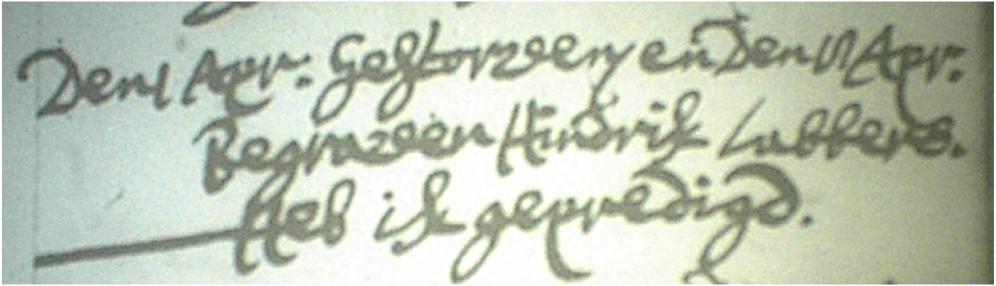 Den 1 Apr. Gestorveen en Den 11 Apr.
Begraveen Hindrik Lubbers.
Heb ik gepredigd.